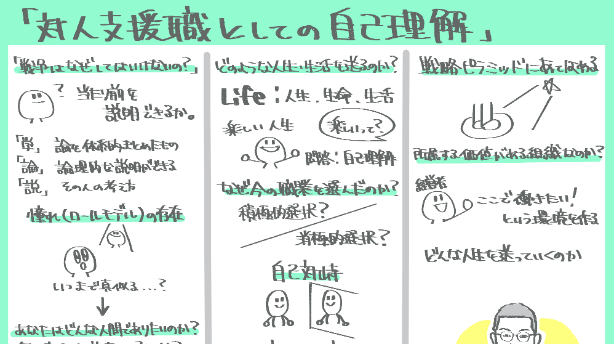 「対人支援職としての自己理解」
「戦争はなぜしてはいけないの?」
? 当たり前を
説明できるか。
「学」 論を体系的まとめたもの
「論」 論理的な説明ができる
「説」 その人の考え方
憧れ(ロールモデル)の存在
いつまで真似る…?
あなたはどんな人間でありたいのか?
どのような人生・生活を送るのか?
Life:人生、生命、生活
楽しい人生 楽しいって?
戦略:自己理解
なぜ今の職業を選んだのか?
積極的選択?
消極的選択?
自己対峙
戦略ピラミッドにあてはめる
所属する価値がある組織なのか?
経営者
ここで働きたい!
という環境を作る
どんな人生を送っていくのか